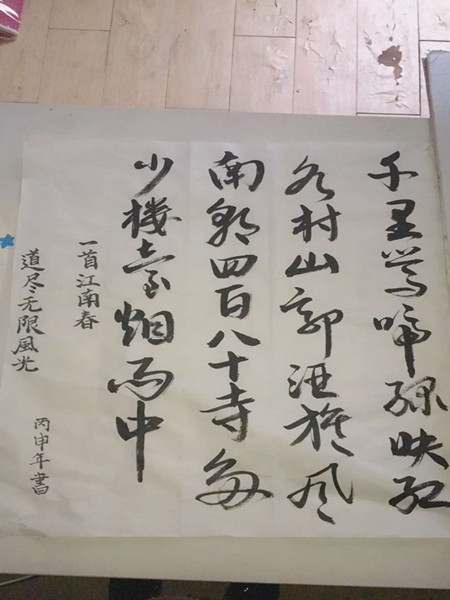 千里莺啼绿映红
水村山郭酒旗风
南朝四百八十寺多
少楼台烟雨中
一首江南春
道尽无限風光
丙申年書